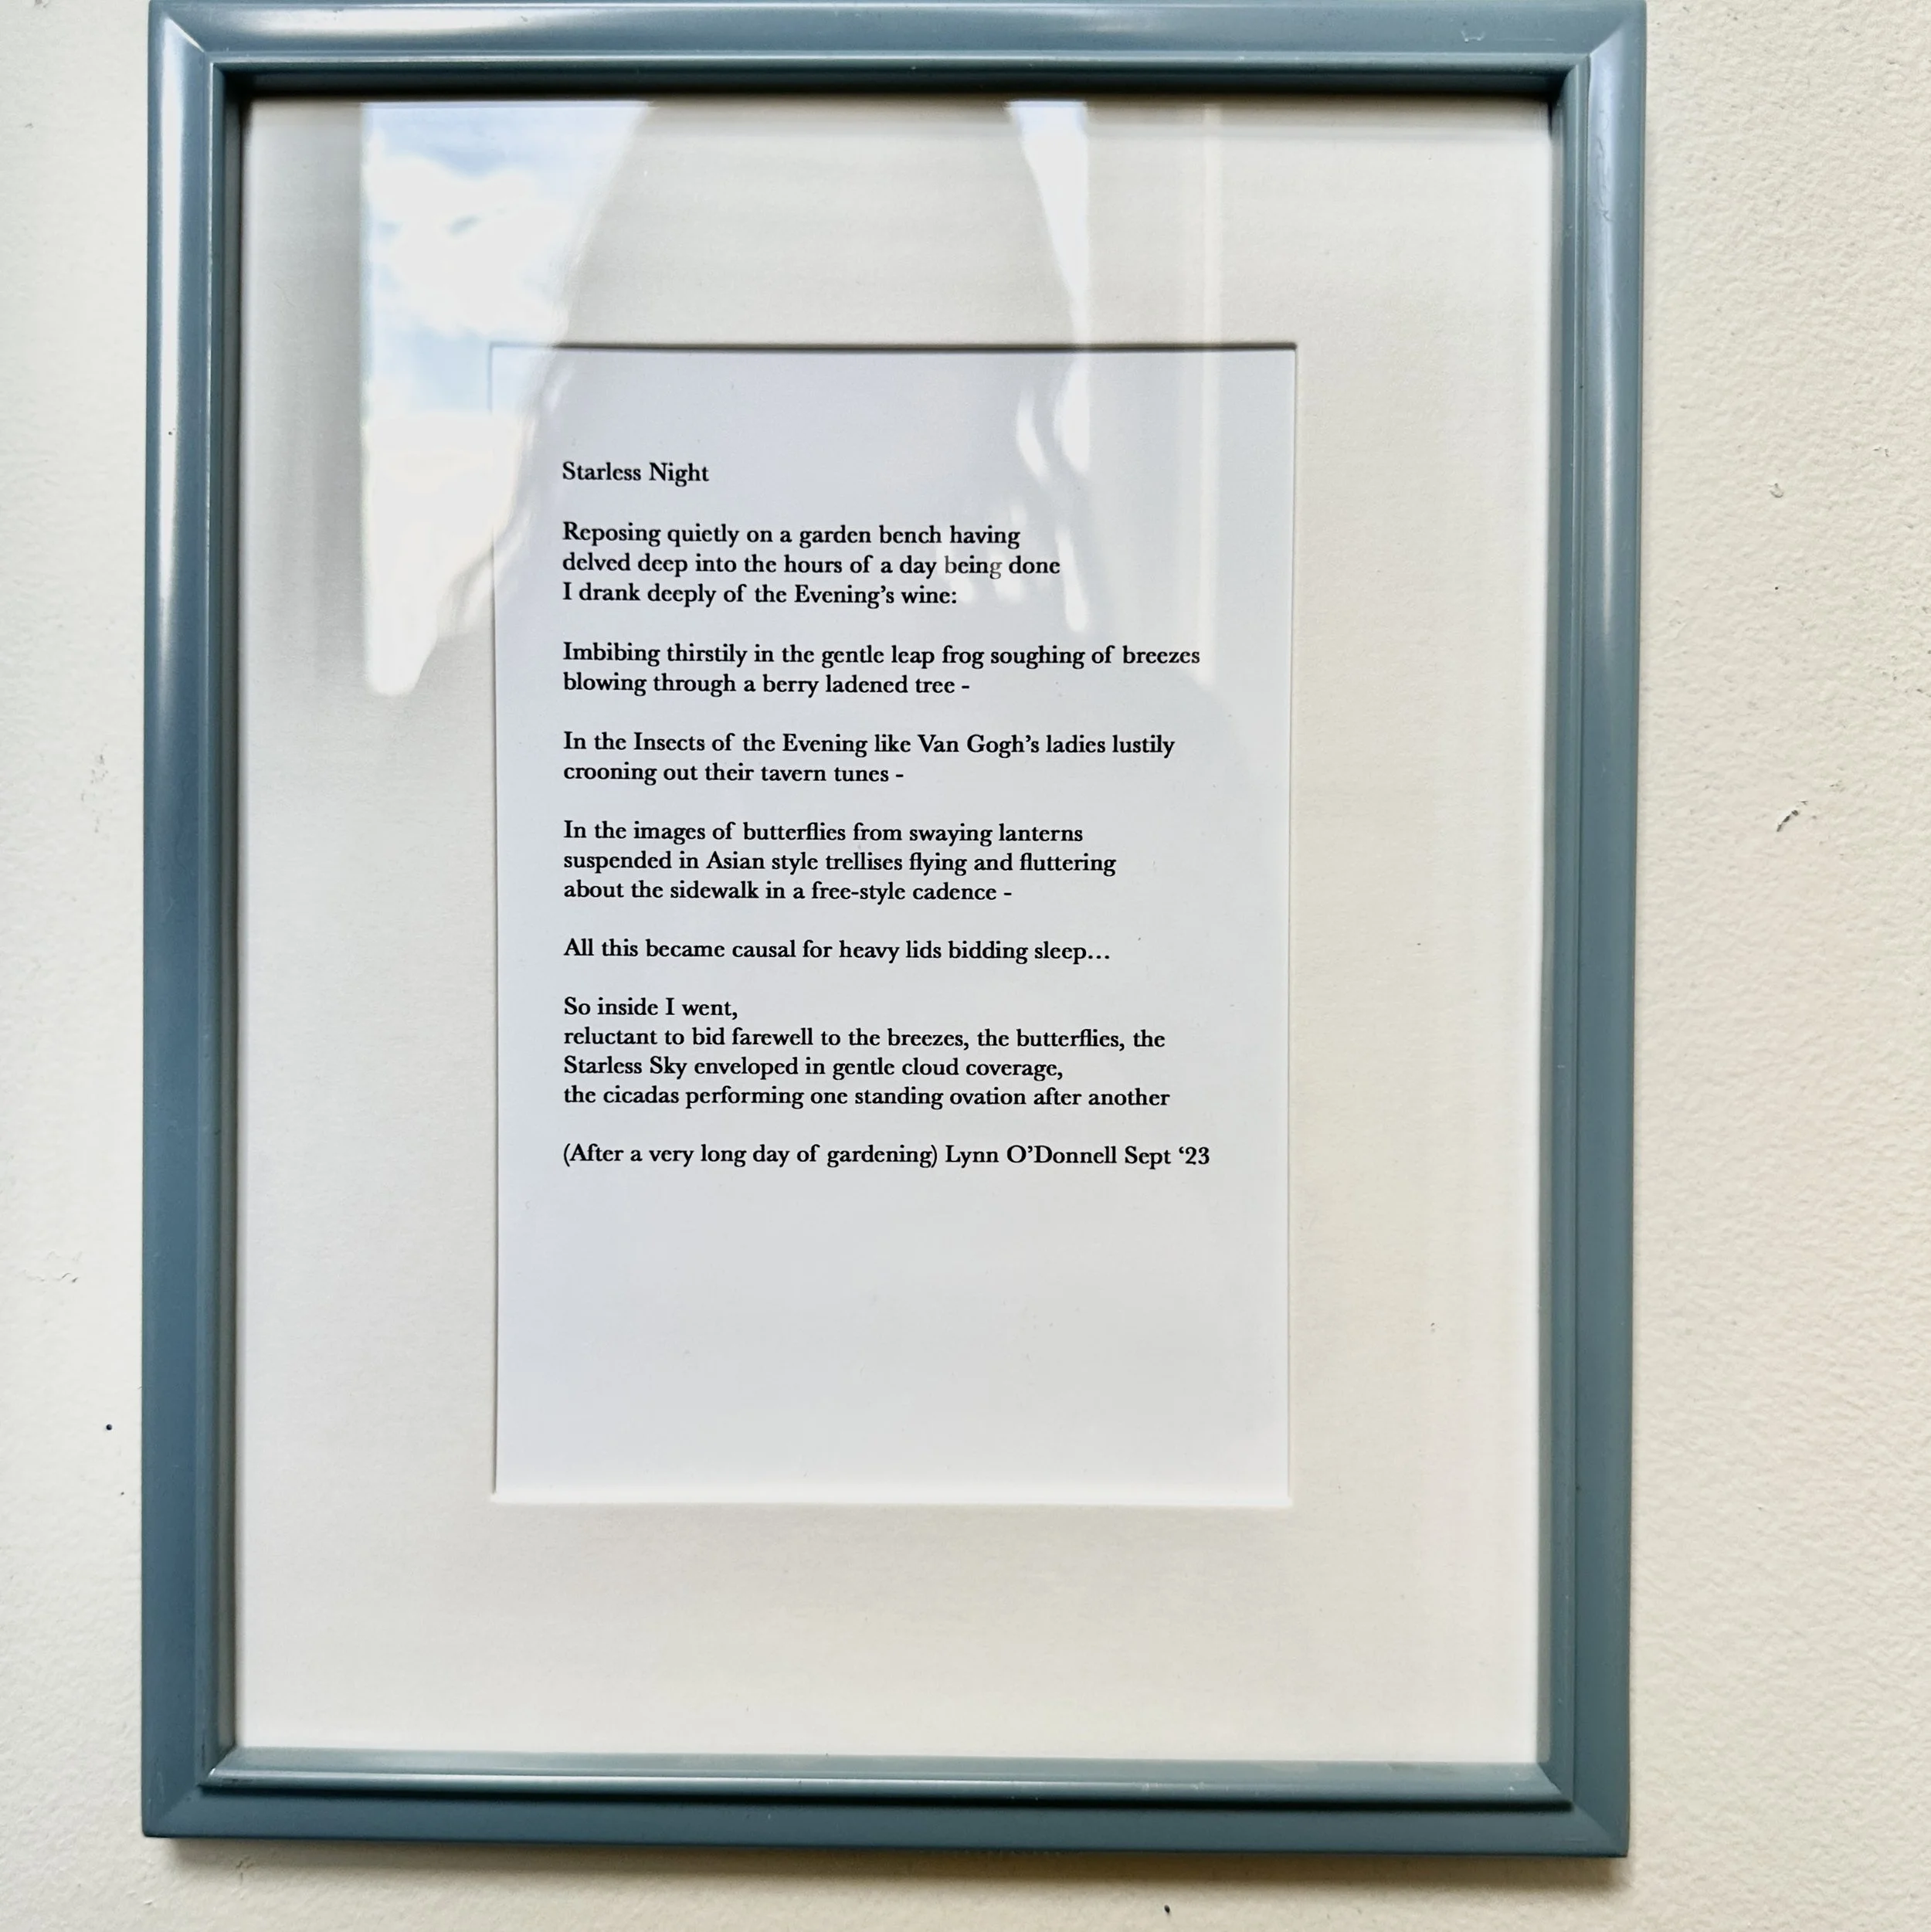 Starless Night
Reposing quietly on a garden bench having
delved deep into the hours of a day being done
I drank deeply of the Evening’s wine:
Imbibing thirstily in the gentle leap frog soughing of breezes
blowing through a berry ladened tree -
In the Insects of the Evening like Van Gogh’s ladies lustily
crooning out their tavern tunes -
In the images of butterflies from swaying lanterns
suspended in Asian style trellises flying and fluttering
about the sidewalk in a free-style cadence -
All this became causal for heavy lids bidding sleep…
So inside I went,
reluctant to bid farewell to the breezes, the butterflies, the
Starless Sky enveloped in gentle cloud coverage,
the cicadas performing one standing ovation after another
(After a very long day of gardening) Lynn O’Donnell Sept ‘23